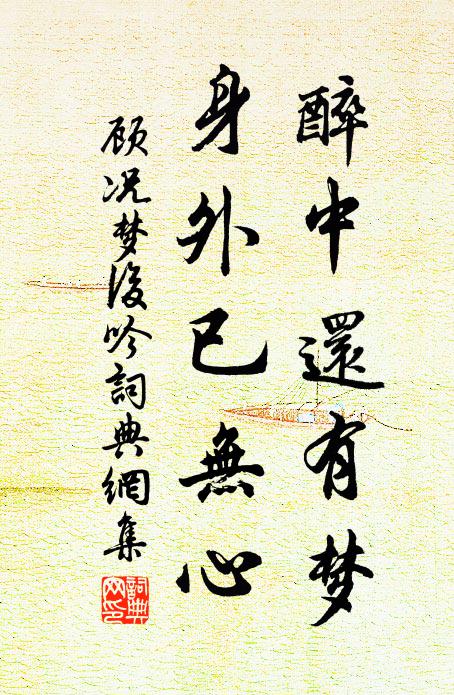 醉中還有梦
身外已無心
顾况梦後吟詞典網集
詞典网印